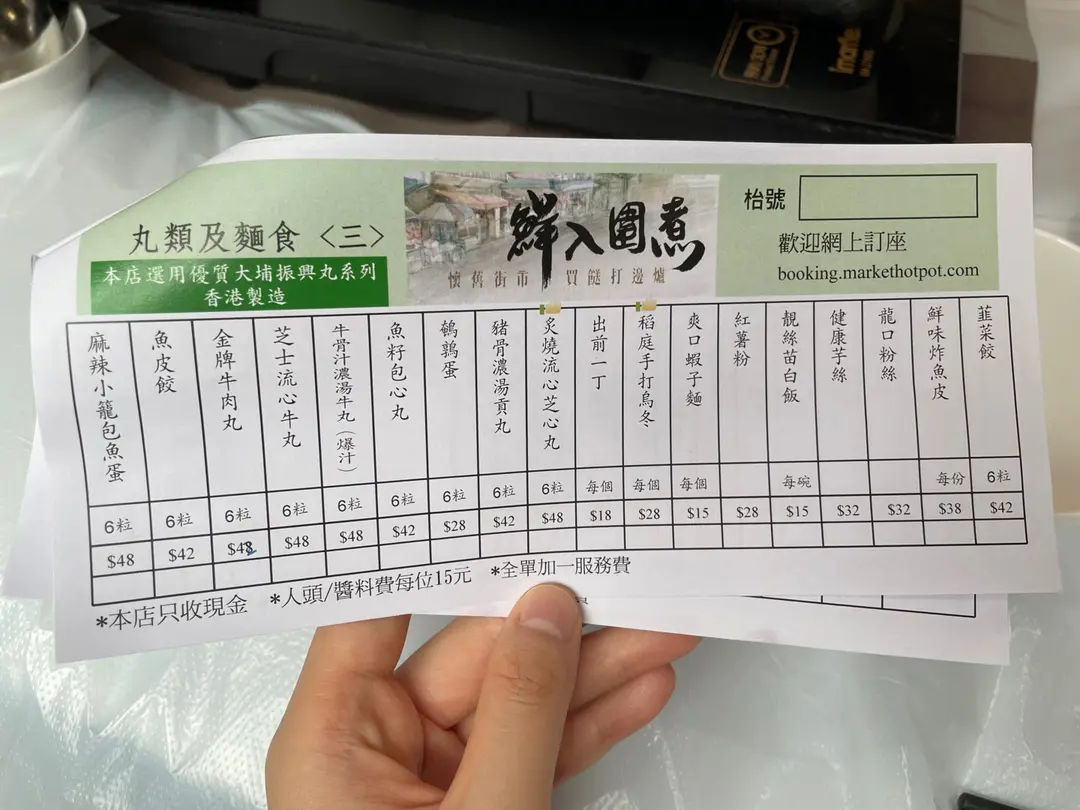 丸類及麵食〈三〉
本店選用優質大埔振興丸系列
香港製造
鮮入圍煮
懷舊街市 買餸打邊爐
枱號
歡迎網上訂座
booking.markethotpot.com
麻辣小籠包魚蛋 6粒 $48
魚皮餃 6粒 $42
金牌牛肉丸 6粒 $42
芝士流心牛丸 6粒 $48
牛骨汁濃湯牛丸（爆汁） 6粒 $48
魚籽包心丸 6粒 $42
鵪鶉蛋 6粒 $28
豬骨濃湯貢丸 6粒 $42
炙燒流心芝心丸 6粒 $48
出前一丁 每個 $18
稻庭手打烏冬 每個 $28
爽口蝦子麵 每個 $15
紅薯粉 $28
靚絲苗白飯 每碗 $15
健康芋絲 $32
龍口粉絲 $32
鮮味炸魚皮 每份 $38
韮菜餃 6粒 $42
*本店只收現金 *人頭/醬料費每位15元 *全單加一服務費
imarflex